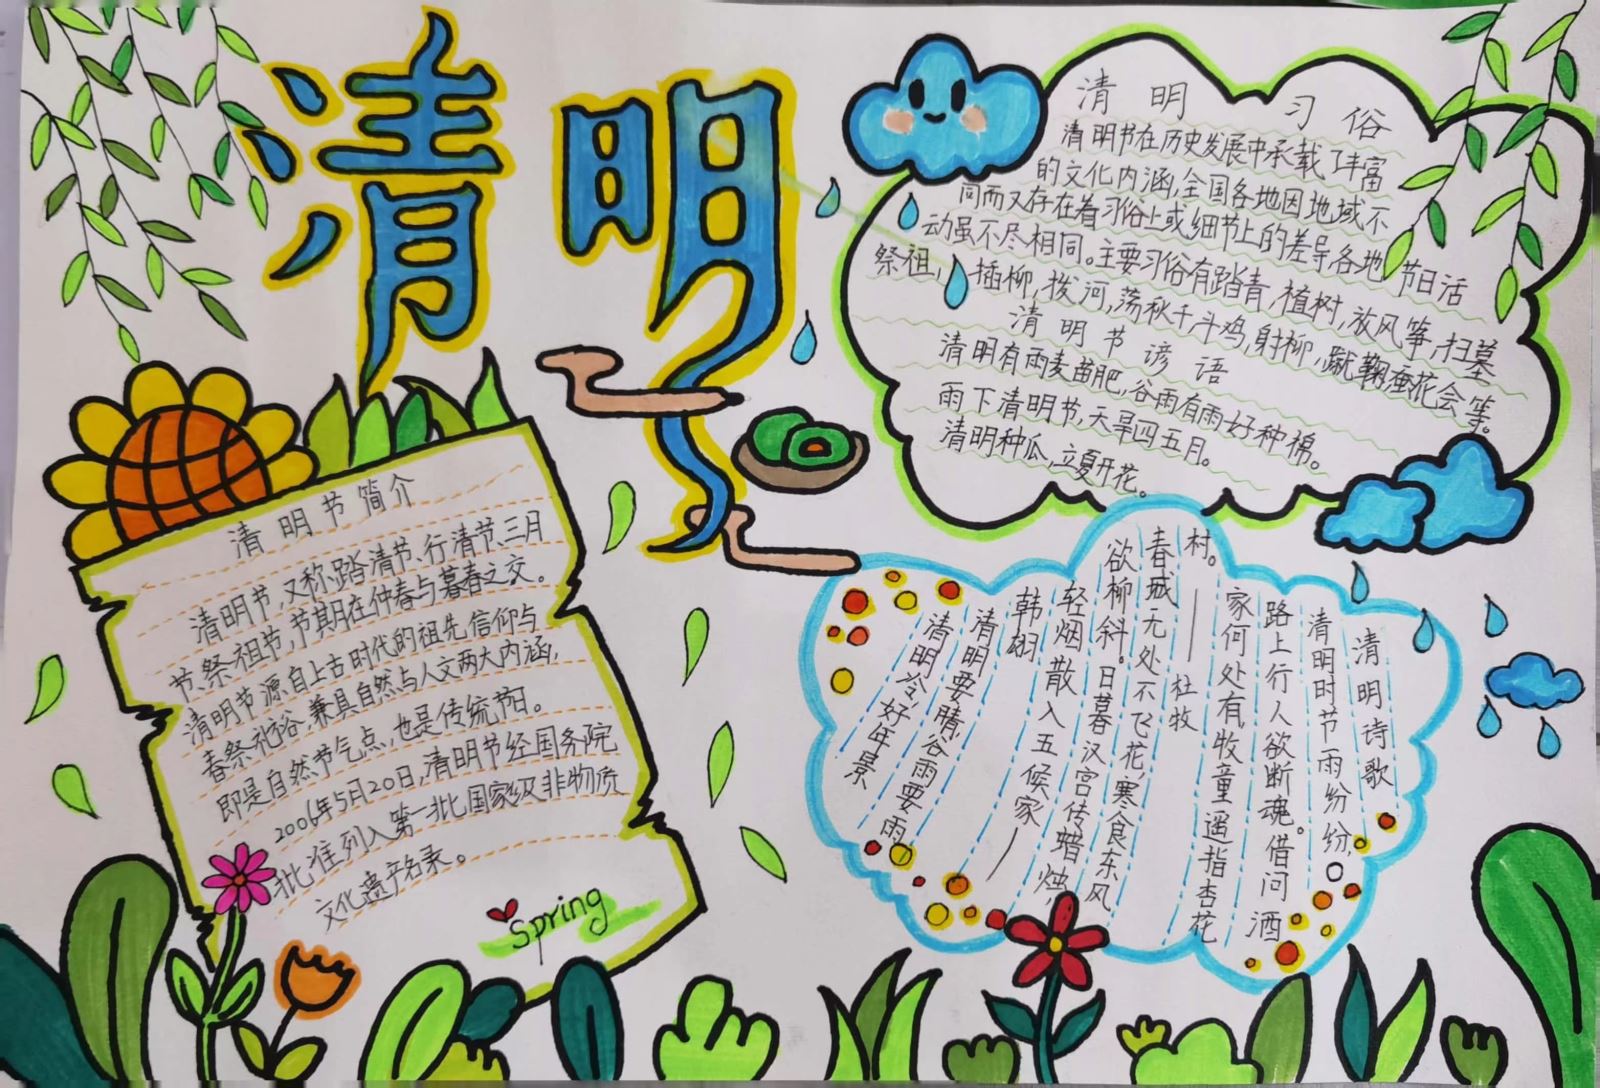 清明
清明节简介
清明节,又称踏清节、行清节、三月
节、祭祖节,节期在仲春与暮春之交。
清明节源自上古时代的祖先信仰与
春祭祀俗,兼具自然与人文两大内涵,
即是自然节气点,也是传统节日。
2006年5月20日,清明节经国务院
批准列入第一批国家级非物质
文化遗产名录。
spring
清明习俗
清明节在历史发展中承载了丰富
的文化内涵,全国各地因地域不
同而又存在着习俗上或细节上的差异,各地节日活
动虽不尽相同。主要习俗有踏青,植树,放风筝,扫墓
祭祖,插柳,拨河,荡秋千斗鸡,射柳,蹴鞠蚕花会等。
清明节谚语
清明有雨麦苗肥,谷雨有雨好种棉。
雨下清明节,天旱四五月。
清明种瓜,立夏开花。
清明诗歌
清明时节雨纷纷,
路上行人欲断魂。借问酒
家何处有,牧童遥指杏花
村。——杜牧
春城无处不飞花,寒食东风
欲柳斜。日暮汉宫传蜡烛,
轻烟散入五候家—
韩翃
清明要晴,谷雨要雨
清明冷,好年景